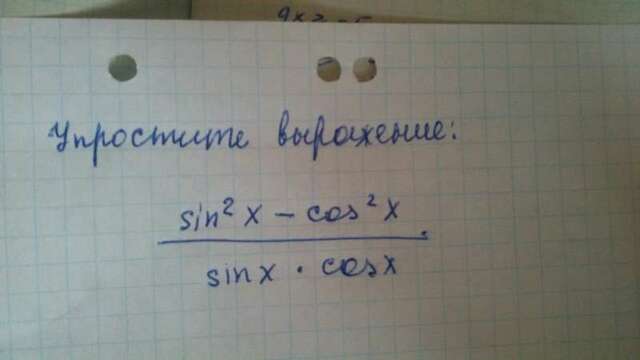 Упростите выражение:
sin² x - cos² x
sin x · cos x